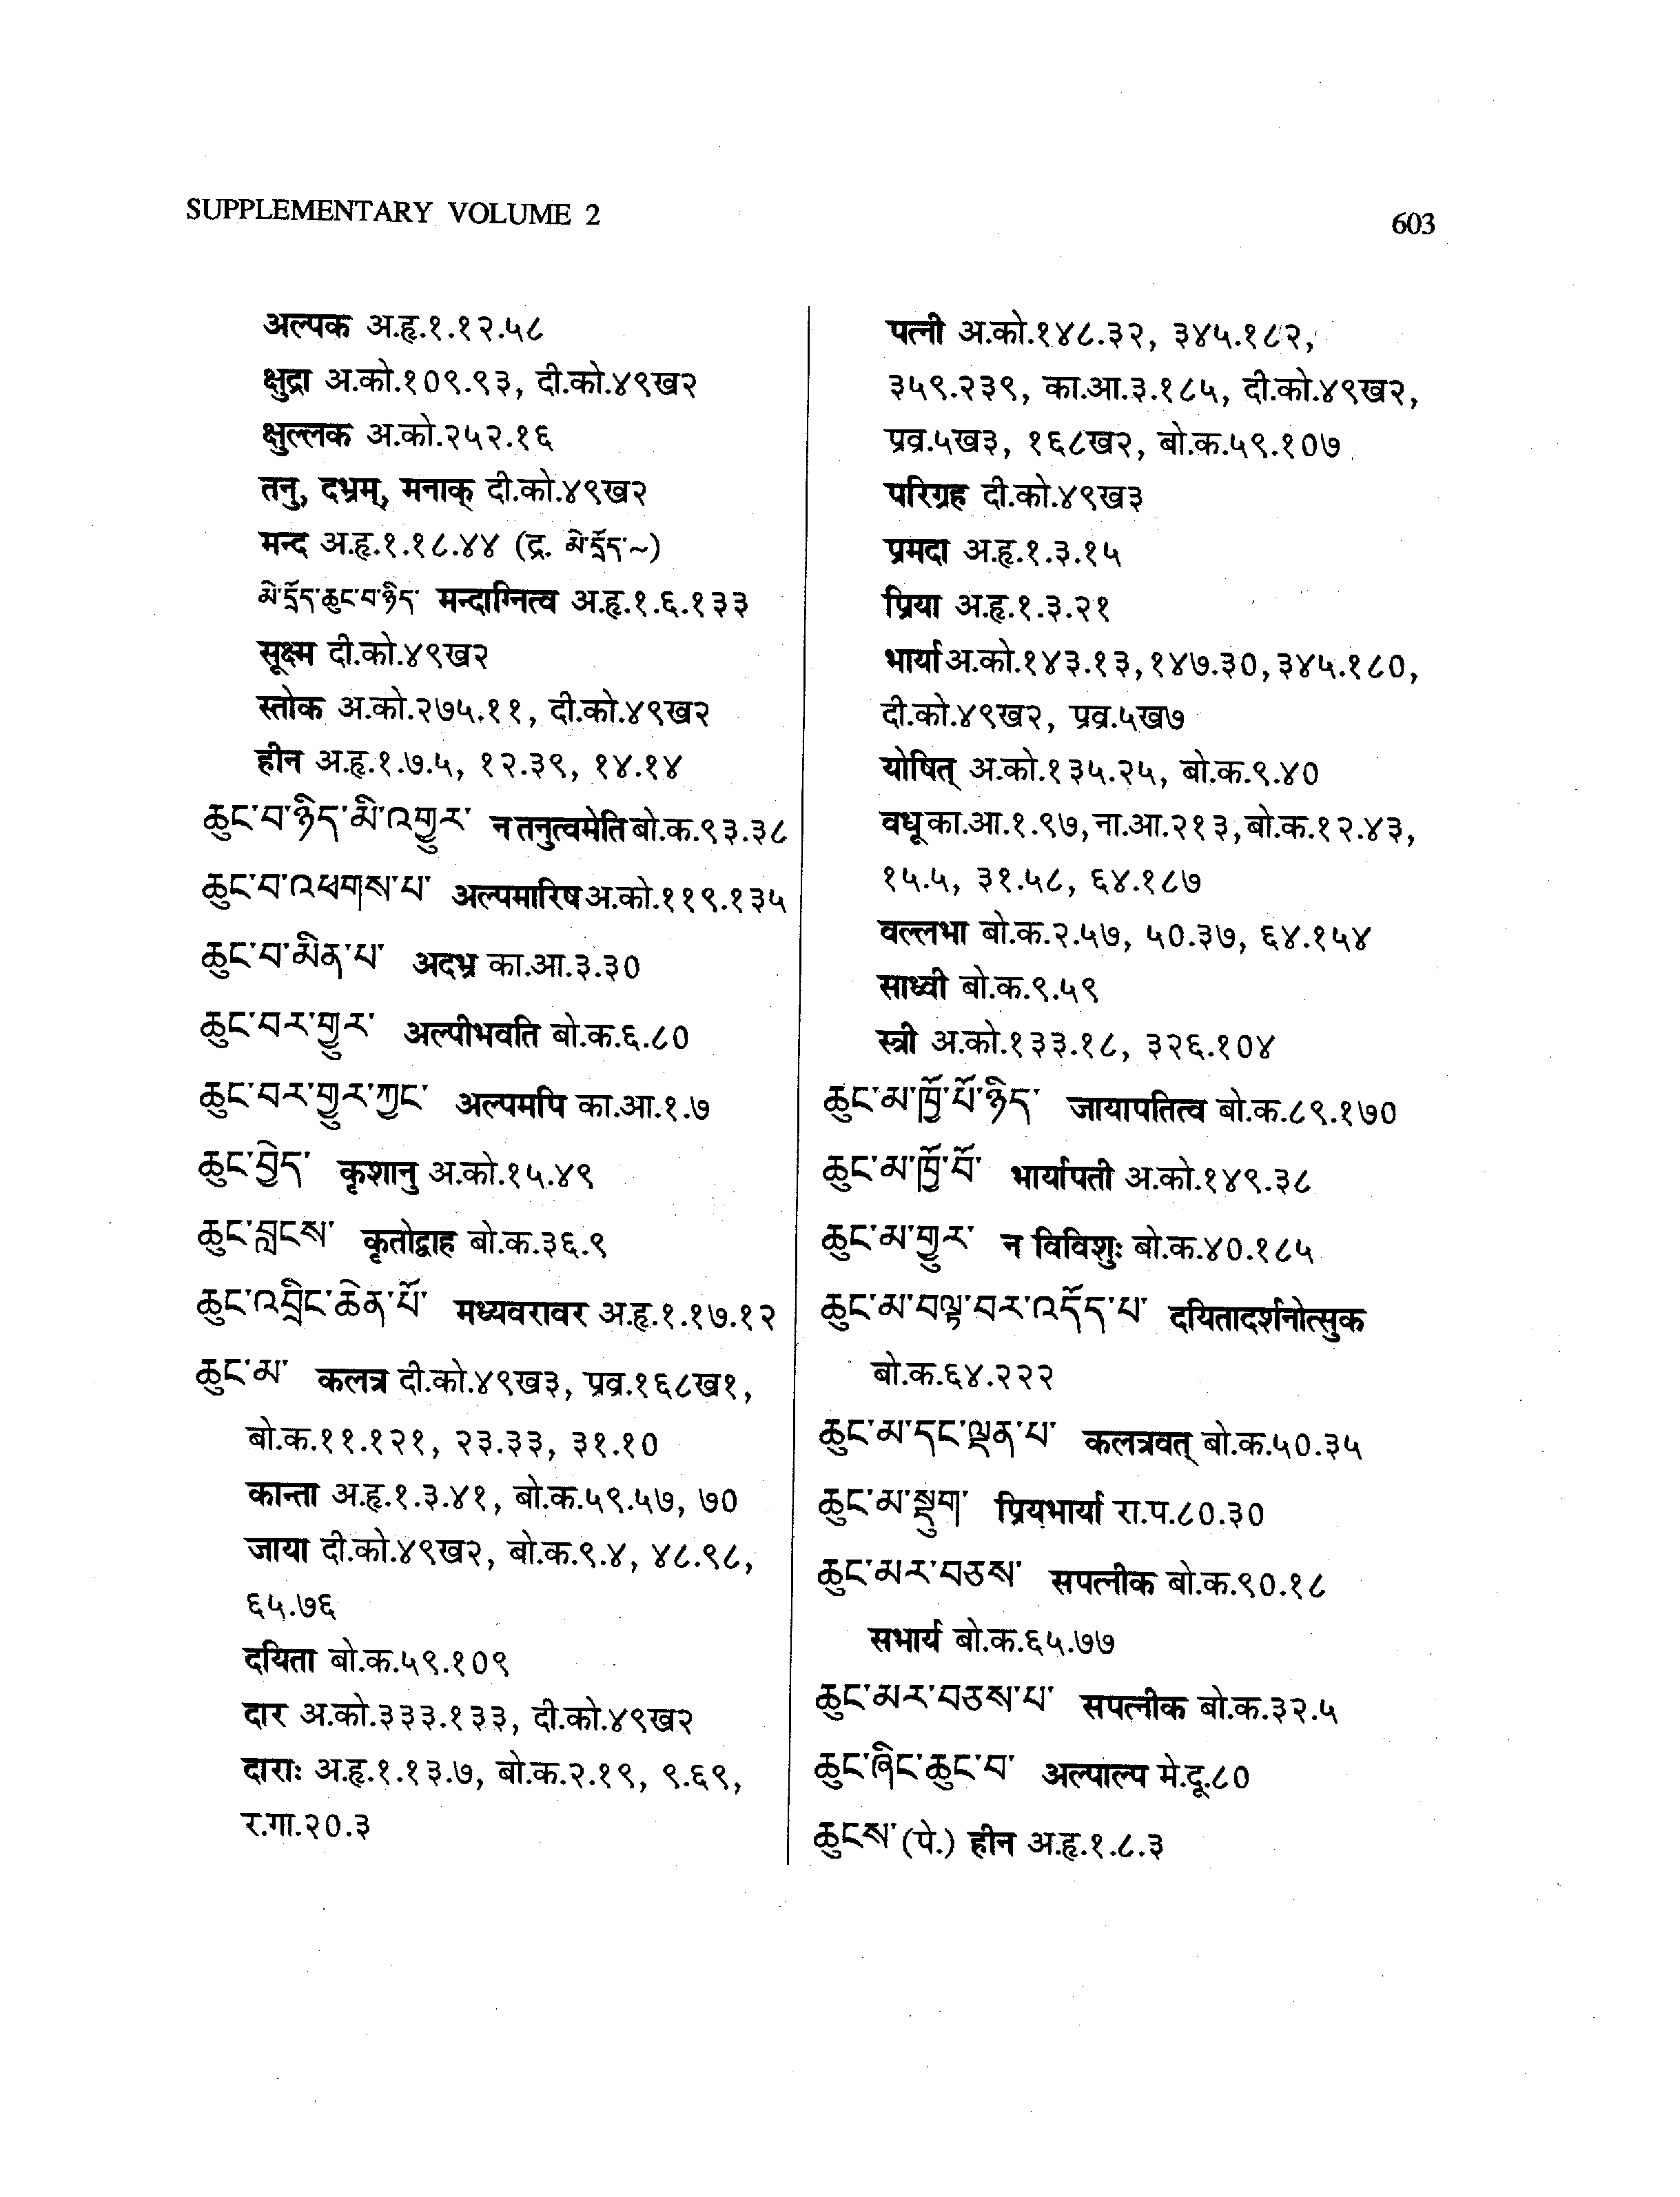 SUPPLEMENTARY VOLUME 2
603
अल्पक अ.हृ.१.१२.५८
क्षुद्रा अ.को.१०९.९३, दी.को.४९ख२
क्षुल्लक अ.को.२५२.१६
तनु, दभ्रम्, मनाक् दी.को.४९ख२
मन्द अ.हृ.१.१८.४४ (द्र. མེ་དྲོད་~)
མེ་དྲོད་ཆུང་བ་ཉིད་ मन्दाग्नित्व अ.हृ.१.६.१३३
सूक्ष्म दी.को.४९ख२
स्तोक अ.को.२७५.११, दी.को.४९ख२
हीन अ.हृ.१.७.५, १२.३९, १४.१४
ཆུང་བ་ཉིད་མི་འགྱུར་ न तनुत्वमेति बो.क.९३.३८
ཆུང་བ་འཕགས་པ་ अल्पमारिष अ.को.११९.१३५
ཆུང་བ་མིན་པ་ अदभ्र का.आ.३.३०
ཆུང་བར་གྱུར་ अल्पीभवति बो.क.६.८०
ཆུང་བར་གྱུར་ཀྱང་ अल्पमपि का.आ.१.७
ཆུང་བྱེད་ कृशानु अ.को.१५.४९
ཆུང་བླངས་ कृतोद्वाह बो.क.३६.९
ཆུང་འབྲིང་ཆེན་པོ་ मध्यवरावर अ.हृ.१.१७.१२
ཆུང་མ་ कलत्र दी.को.४९ख३, प्रव्र.१६८ख१,
बो.क.११.१२१, २३.३३, ३१.१०
कान्ता अ.हृ.१.३.४१, बो.क.५९.५७, ७०
जाया दी.को.४९ख२, बो.क.९.४, ४८.९८,
६५.७६
दयिता बो.क.५९.१०९
दार अ.को.३३३.१३३, दी.को.४९ख२
दाराः अ.हृ.१.१३.७, बो.क.२.१९, ९.६९,
र.गा.२०.३
पत्नी अ.को.१४८.३२, ३४५.१८२,
३५९.२३९, का.आ.३.१८५, दी.को.४९ख२,
प्रव्र.५ख३, १६८ख२, बो.क.५९.१०७
परिग्रह दी.को.४९ख३
प्रमदा अ.हृ.१.३.१५
प्रिया अ.हृ.१.३.२१
भार्या अ.को.१४३.१३, १४७.३०, ३४५.१८०,
दी.को.४९ख२, प्रव्र.५ख७
योषित् अ.को.१३५.२५, बो.क.९.४०
वधू का.आ.१.९७, ना.आ.२१३, बो.क.१२.४३,
१५.५, ३१.५८, ६४.१८७
वल्लभा बो.क.२.५७, ५०.३७, ६४.१५४
साध्वी बो.क.९.५९
स्त्री अ.को.१३३.१८, ३२६.१०४
ཆུང་མ་ཁྱོ་པོ་ཉིད་ जायापतित्व बो.क.८९.१७०
ཆུང་མ་ཁྱོ་བོ་ भार्यापती अ.को.१४९.३८
ཆུང་མ་གྱུར་ न विविशुः बो.क.४०.१८५
ཆུང་མ་བལྟ་བར་འདོད་པ་ दयितादर्शनोत्सुक
बो.क.६४.२२२
ཆུང་མ་དང་ལྡན་པ་ कलत्रवत् बो.क.५०.३५
ཆུང་མ་སྡུག་ प्रियभार्या रा.प.८०.३०
ཆུང་མར་བཅས་ सपत्नीक बो.क.९०.१८
सभार्य बो.क.६५.७७
ཆུང་མར་བཅས་པ་ सपत्नीक बो.क.३२.५
ཆུང་ཞིང་ཆུང་བ་ अल्पाल्प मे.दू.८०
ཆུངས་ (पे.) हीन अ.हृ.१.८.३